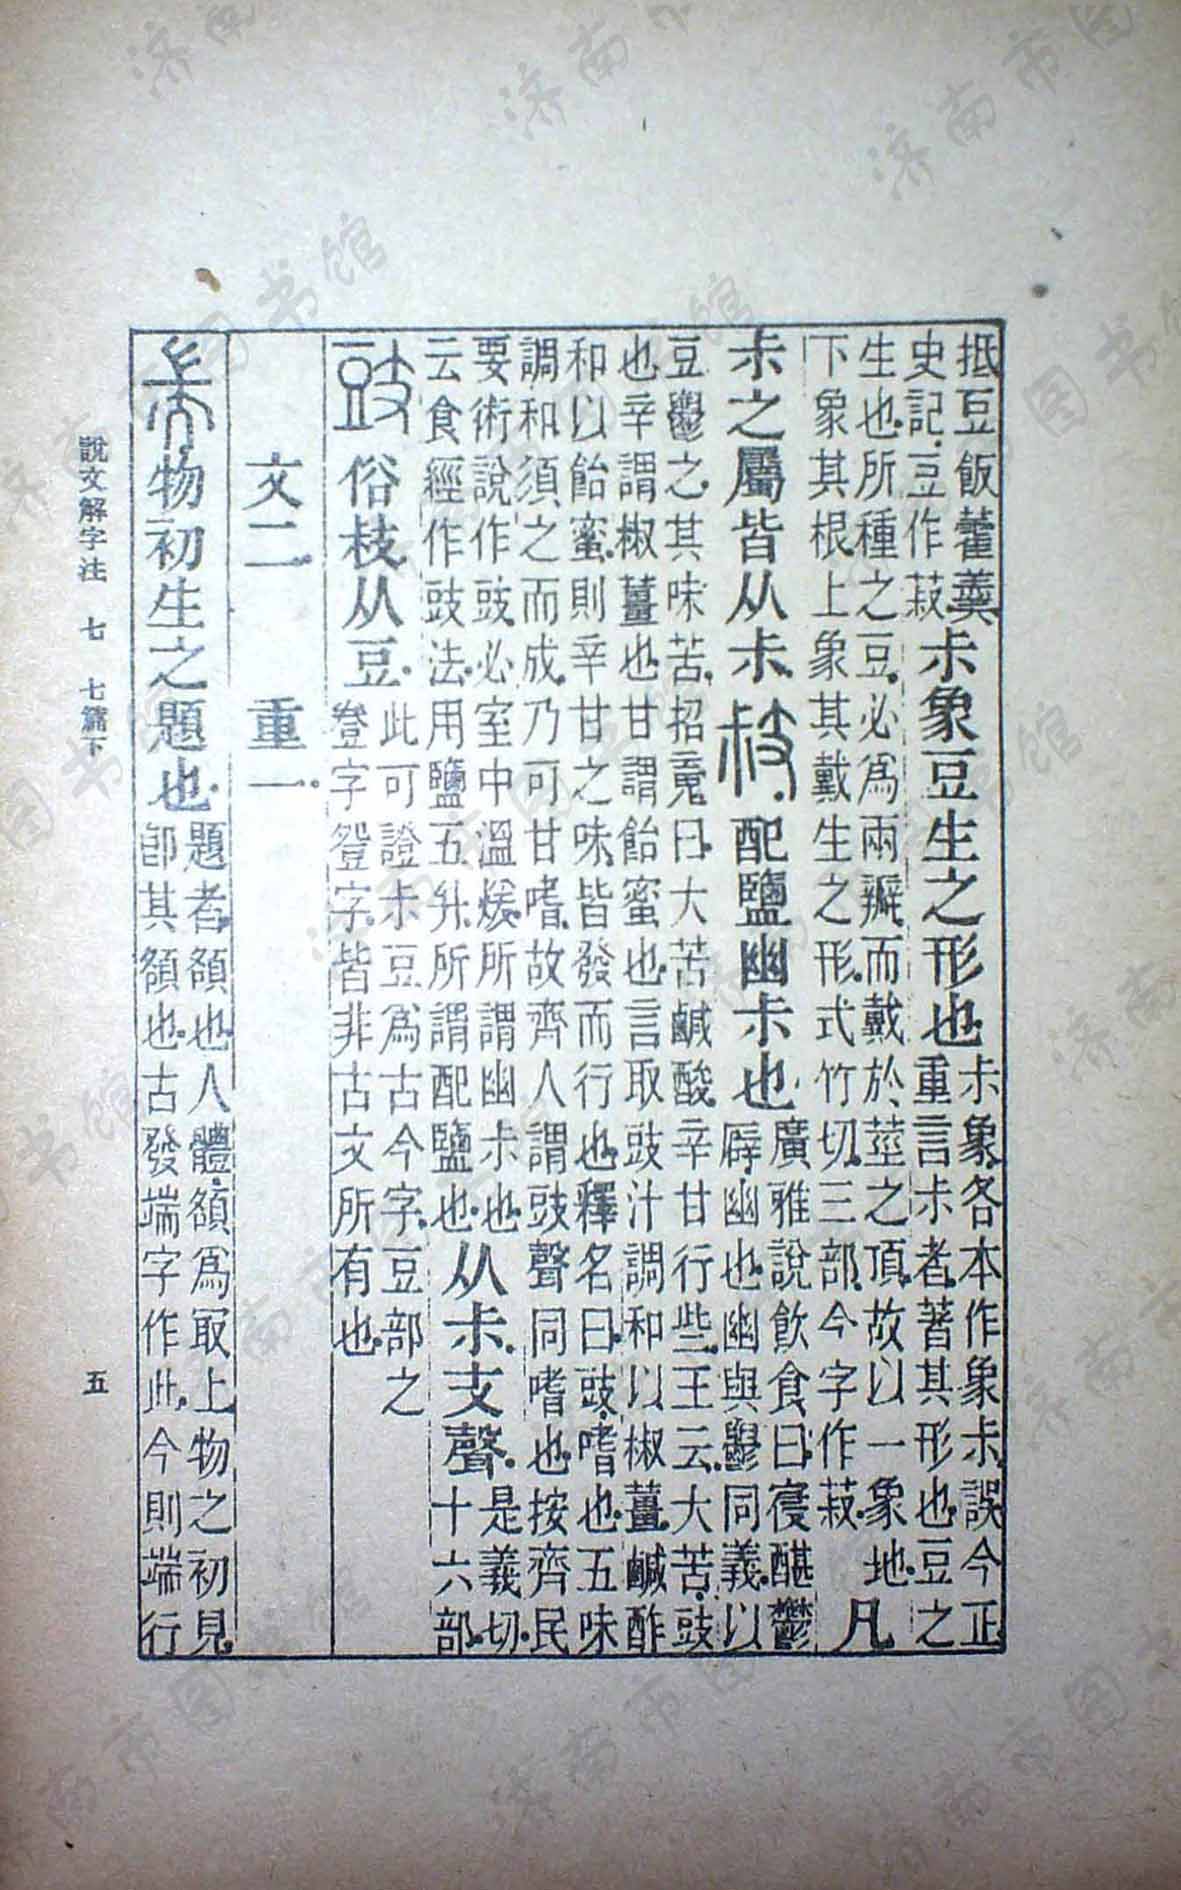 抵豆飯藿羹
史記豆作菽
尗象豆生之形也
尗象各本作象尗誤今正
重言尗者著其形也豆之
生也所種之豆必爲兩瓣而戴於莖之頂故以一象地
下象其根上象其戴生之形式竹切三部今字作菽
凡
尗之屬皆从尗
𢻃
配鹽幽尗也
廣雅說飮食曰寑䤄鬱
廦幽也幽與鬱同義以
豆鬱之其味苦招䰟曰大苦鹹酸辛甘行些王云大苦豉
也辛謂椒薑也甘謂飴蜜也言取豉汁調和以椒薑鹹酢
和以飴蜜則辛甘之味皆發而行也釋名曰豉嗜也五味
調和須之而成乃可甘嗜故齊人謂豉聲同嗜也按齊民
要術說作豉必室中溫煖所謂幽尗也
云食經作豉法用鹽五升所謂配鹽也
从尗支聲
是義切
十六部
豉
俗𢻃从豆
此可證尗豆爲古今字豆部之
豋字䝁字皆非古文所有也
文二　重一
耑
物初生之題也
題者頟也人體頟爲冣上物之初見
卽其頟也古發端字作此今則端行
說文解字注　七　七篇下　五
济南市图书馆